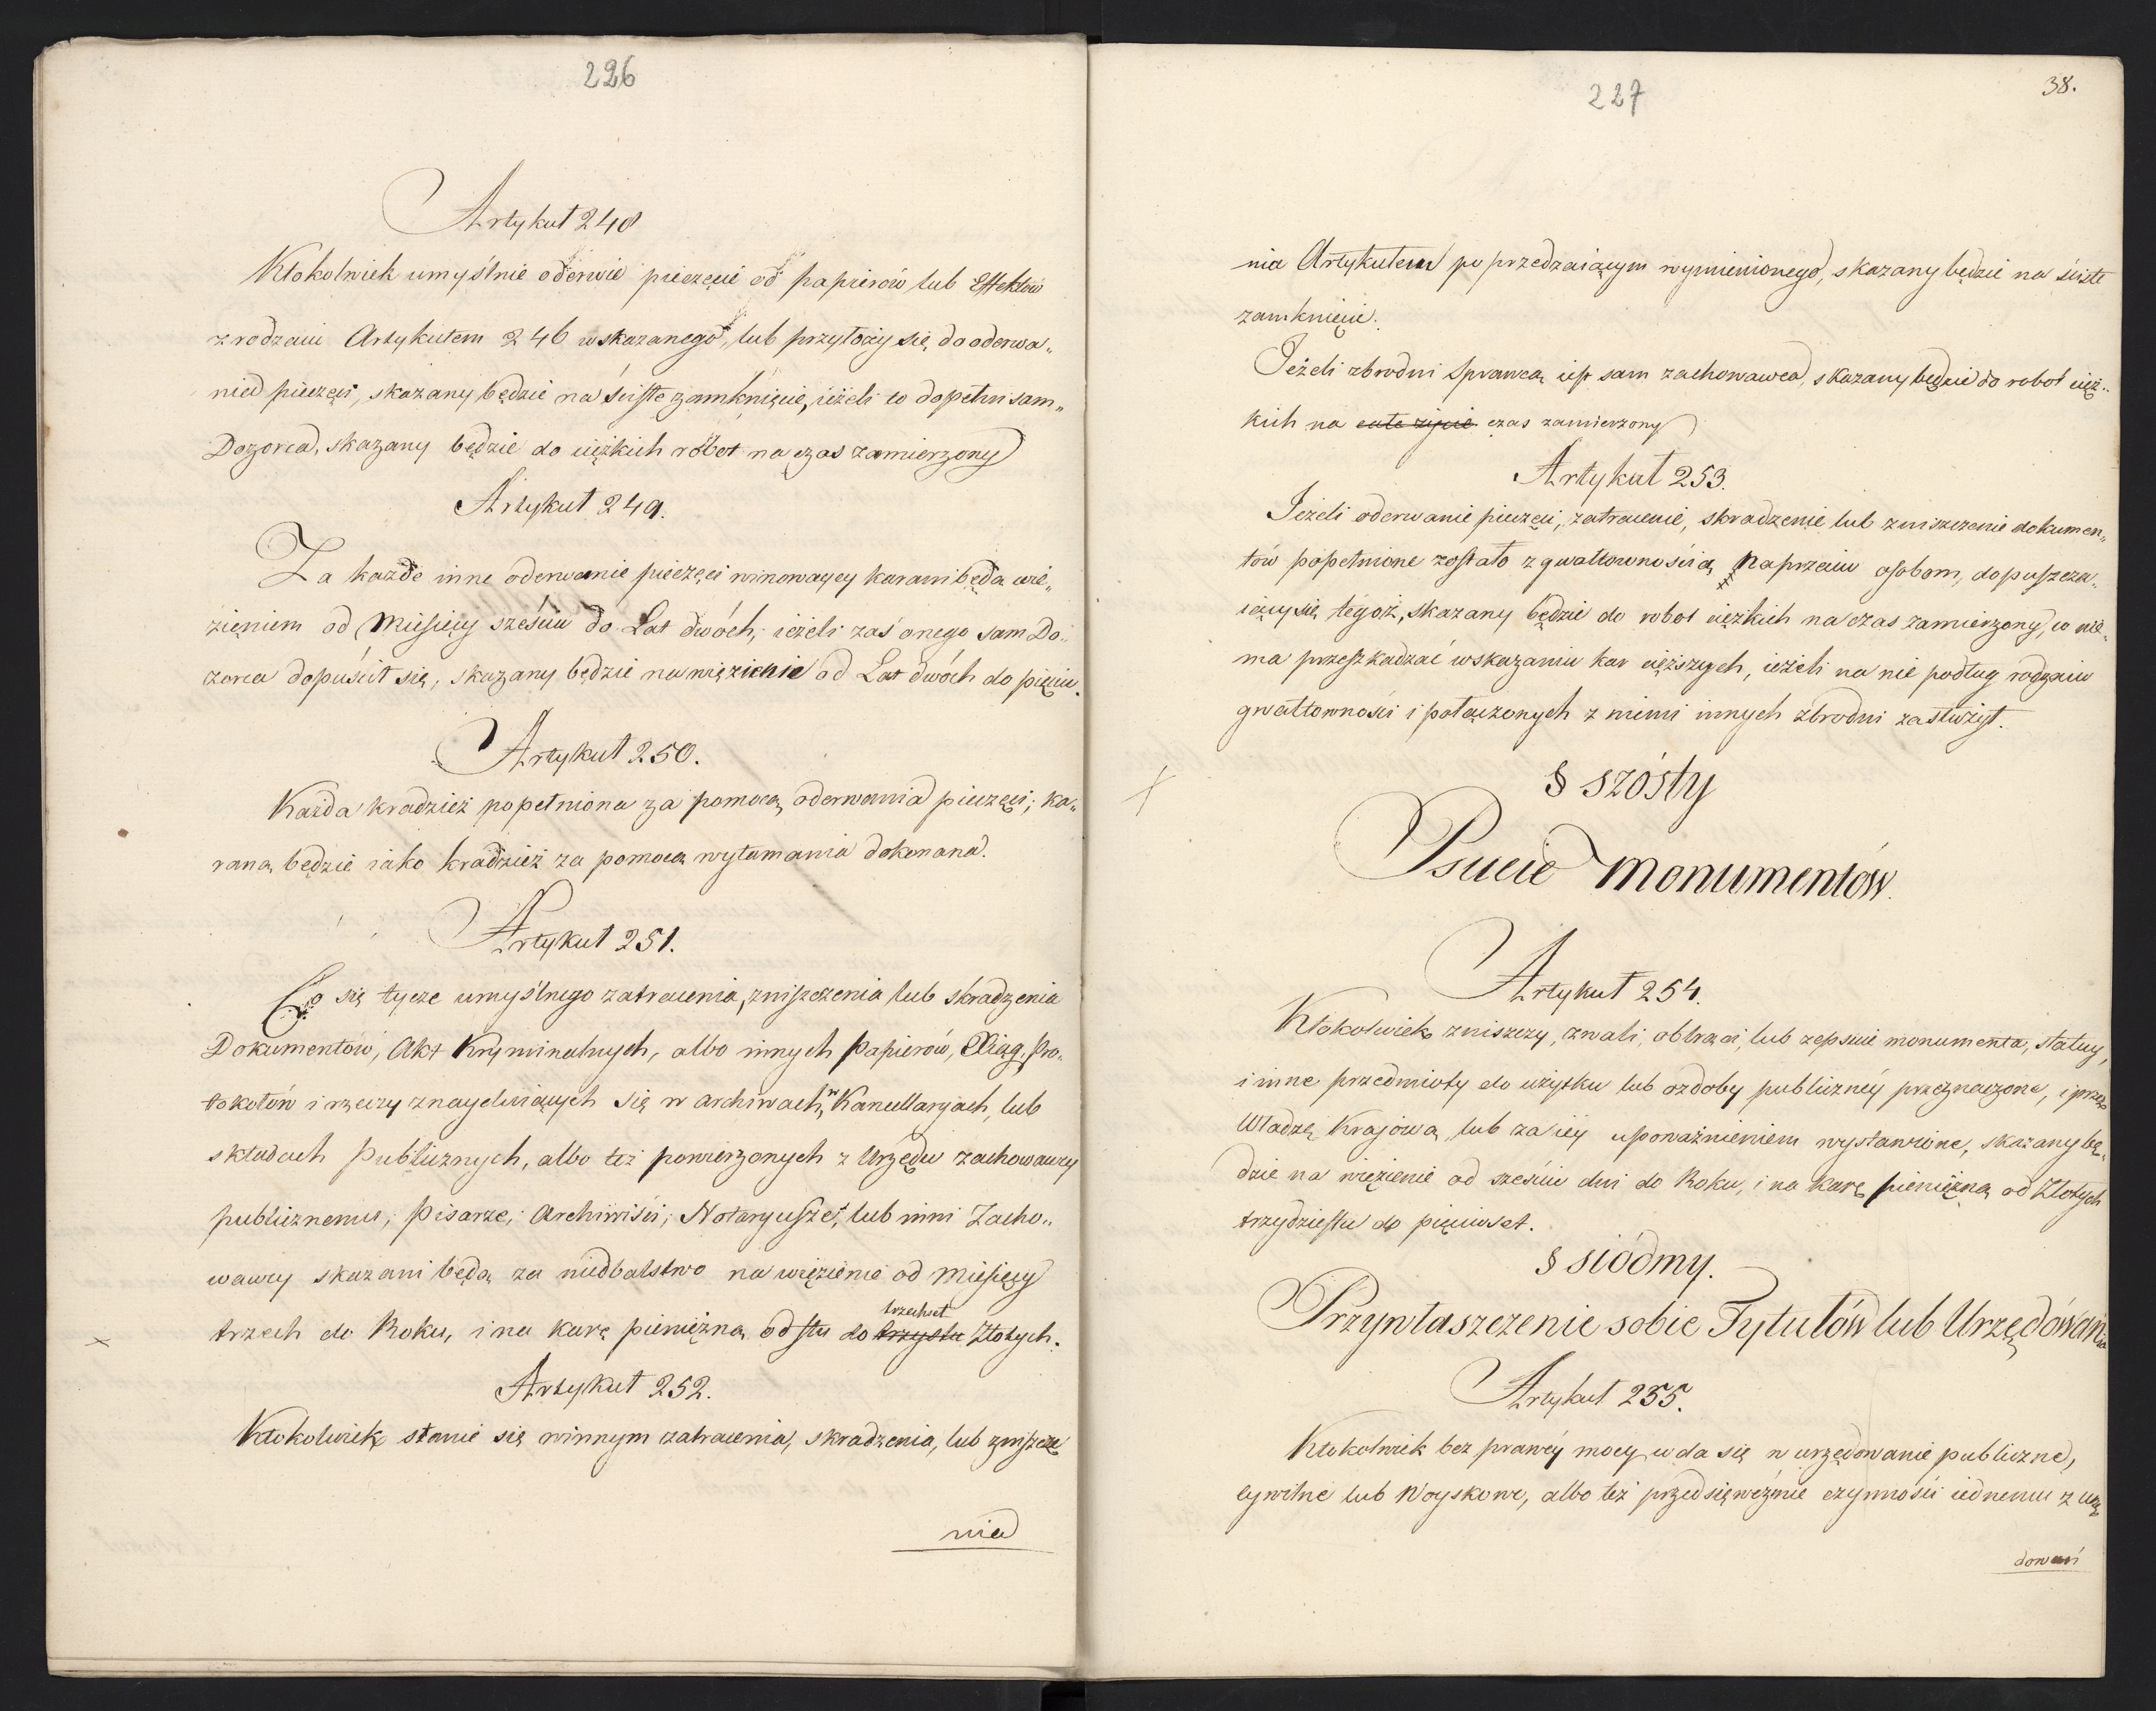 226
Artykuł 248
Ktokolwiek umyślnie oderwie pieczęci od papierów lub Effektów
z rodzaiu Artykułem 246 wskazanego, lub przyłoży się do oderwa„
nia pieczęci, skazany będzie na ścisłe zamknięcie, ieżeli to dopełni sam„
Dozorca, skazany będzie do ciężkich robot na czas zamierzony
Artykuł 249.
Za każde inne oderwanie pieczęci winowaycy karani będą wię„
zieniem od Miesięcy sześciu do Lat dwóch; ieżeli zaś onego sam Do„
zorca dopuścił się, skazany będzie na więzienie od Lat dwóch do pięciu.
Artykuł 250.
Każda kradzież popełniona za pomocą oderwania pieczęci; ka„
raną będzie iako kradzież za pomocą wyłamania dokonana.
Artykuł 251.
Co się tycze umyślnego zatracenia, zniszczenia lub skradzenia
Dokumentów, Akt Kryminalnych, albo innych Papierów, Xiąg, Pro„
tokołów i rzeczy znayduiących się w archiwach, w Kancellaryach, lub
składach Publicznych, albo też powierzonych z Urzędu zachowawcy
publicznemu; Pisarze; Archiwiści; Notaryusze, lub inni Zacho„
wawcy skazani będą za niedbalstwo na więzienie od Miesięcy
trzechset
trzech do Roku, i na karę pieniężną od stu do trzystu Złotych.
Artykuł 252.
Ktokolwiek stanie się winnym zatracenia, skradzenia, lub zniszcze
nia
227
38.
nia Artykułem poprzedzaiącym wymienionego, skazany będzie na ścisłe
zamknięcie.
Jeżeli zbrodni Sprawcą iest sam zachowawca, skazany będzie do robot cięż„
kich na całe życie czas zamierzony
Artykuł 253.
Jeżeli oderwanie pieczęci, zatracenie, skradzenie lub zniszczenie dokumen„
tów popełnione zostało z gwałtownością naprzeciw osobom, dopuszcza„
iący się tegoż, skazany będzie do robot ciężkich na czas zamierzony, co nie„
ma przeszkadzać wskazaniu kar cięższych, ieżeli na nie podług rodzaiu
gwałtowności i połączonych z niemi innych zbrodni zasłużył.
§ szósty
Psucie Monumentów.
Artykuł 254.
Ktokolwiek zniszczy, zwali, obtrąci, lub zepsuie monumenta, statuy,
i inne przedmioty do użytku lub ozdoby publicznéy przeznaczone, i przez
Władzę Krajową, lub za iéy upoważnieniem wystawione, skazany bę„
dzie na więzienie od sześciu dni do Roku, i na karę pieniężną od Złotych
trzydziestu do pięciuset.
§ siódmy.
Przywłaszczenie sobie Tytułów lub Urzędówania
Artykuł 255.
Ktokolwiek bez prawéy mocy wda się w urzędowanie publiczne,
cywilne lub Woyskowe, albo też przedsięweźmie czynności iednemu z urzę
dowań